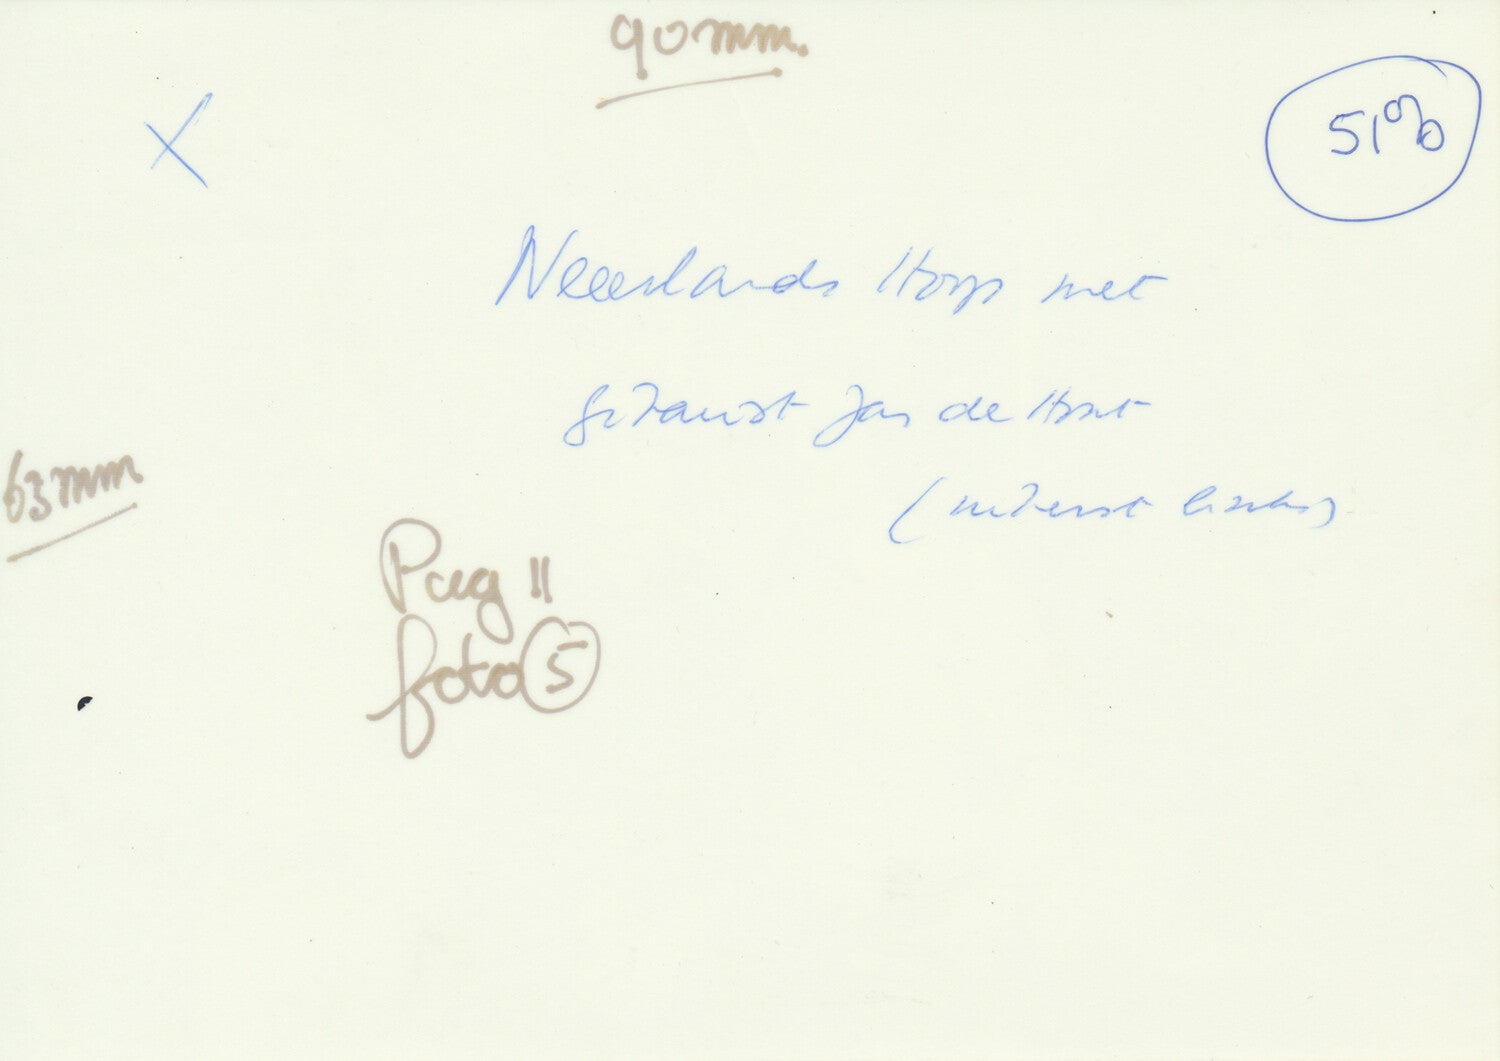 90 mm.
X
51%
Neerlands Hoop met
gitarist Jan de Hont
(uiterst links)
63 mm
Pag 11
foto 5